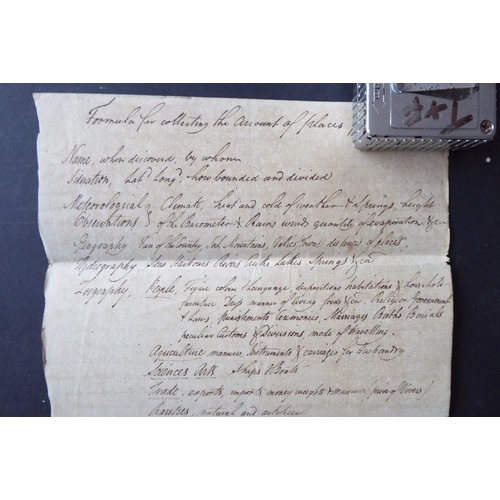 Formula for collecting the Account of places
Name, when discovered, by whom
Situation, Latd Longd, how bounded and divided
Meteorological Climate, heat and cold of weather & Springs height
Observations of the Barometer & Rains winds quantity of evaporation &c
Geography Face of the Country, Mountains, Vales, Towns distances of places.
Hydrography Seas Harbours Rivers Lakes Springs &ca
People, Figure colour Language, dispositions habitations & household
furniture Dress manner of living foods &ca Religion Government
& Laws punishments ceremonies, Marriages Births Burials
peculiar Customs & Diversions mode of travelling.
Agriculture manures instruments & carriages for husbandry
Sciences Arts Ships & Boats
Trade, exports, imports money weights & measures
natural and